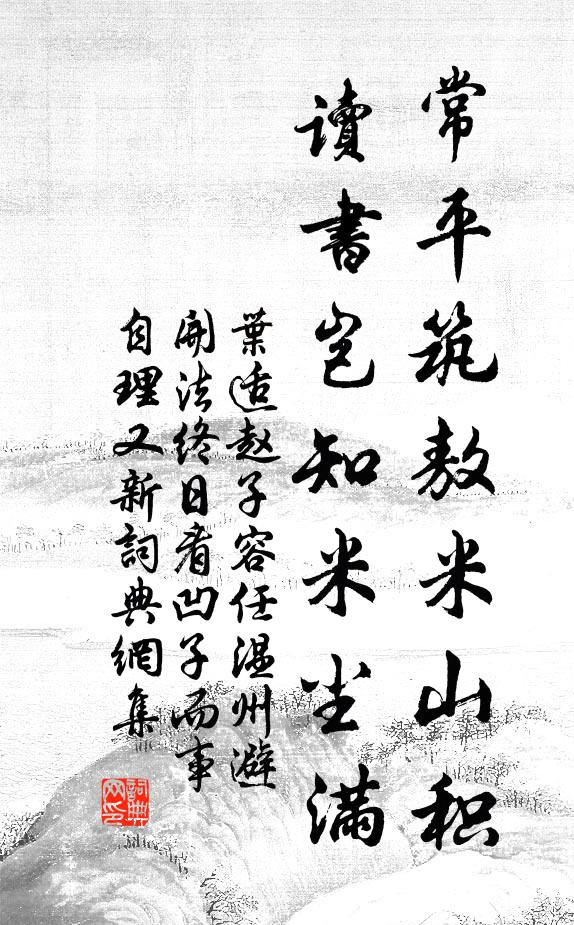 常平筑敖米山积
讀書岂知米尘满
葉适赵子容任温州避
開法终日看凹子而事
自理又新詞典網集
詞典
网印